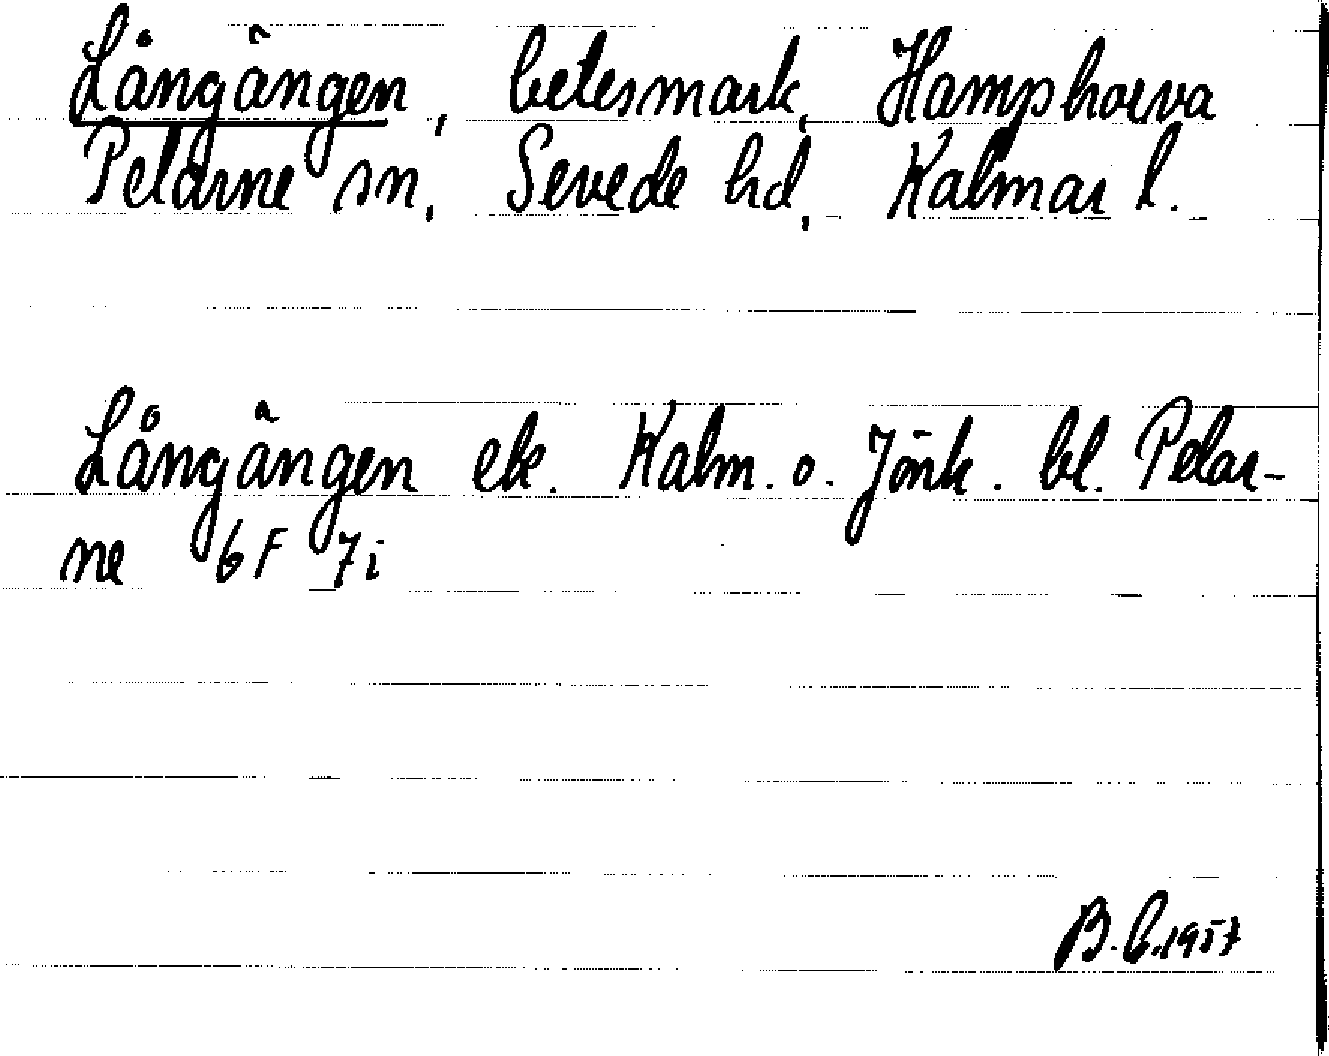 Långängen, betesmark, Hamphorva
Pelarne sn, Sevede hd, Kalmar l.
Långängen ek. Kalm. o. Jönk. bl. Pelar-
ne 6F 7i
B.C.1957